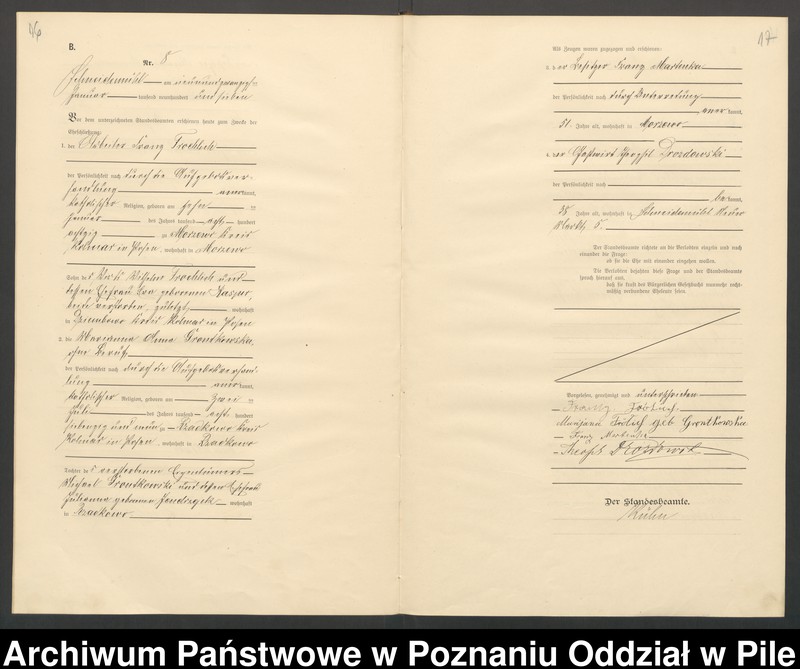 16
B.
Nr. 8
Schneidemühl am neunundzwanzigsten
Januar tausend neunhundert und sieben
Vor dem unterzeichneten Standesbeamten erschienen heute zum Zwecke der
Eheschließung:
1. der Arbeiter Franz
der Persönlichkeit nach durch die Aufgebotsver-
handlung anerkannt,
katholischer Religion, geboren am zehnten
Januar des Jahres tausend acht hundert
achtzig zu Morzewo Kreis
Kolmar in Posen, wohnhaft in Morzewo
Sohn des Wilhelm und
dessen Ehefrau Eva geborenen Kaspur,
beide verstorben, zuletzt wohnhaft
in Dziembowo Kreis Kolmar in Posen
2. die Marianna Anna Grontkowska,
ohne Beruf
der Persönlichkeit nach durch die Aufgebotsverhand-
lung anerkannt,
katholischer Religion, geboren am zwei ten
Juli des Jahres tausend acht hundert
siebenzig und neun zu Brodkowo Kreis
Kolmar in Posen, wohnhaft in
Tochter des verstorbenen Eigentümers
Michael Grontkowski und dessen Ehefrau
Julianna geborenen wohnhaft
in
17
Als Zeugen waren zugezogen und erschienen:
3. der Besitzer Franz Martenka
der Persönlichkeit nach durch Unterredung
anerkannt,
51 Jahre alt, wohnhaft in Morzewo
4. der Gastwirt Theophil Drozdowski
der Persönlichkeit nach
bekannt,
38 Jahre alt, wohnhaft in Schneidemühl Neuer
Markt 5.
Der Standesbeamte richtete an die Verlobten einzeln und nach
einander die Frage:
ob sie die Ehe mit einander eingehen wollen.
Die Verlobten bejahten diese Frage und der Standesbeamte
sprach hierauf aus,
daß sie kraft des Bürgerlichen Gesetzbuchs nunmehr recht-
mäßig verbundene Eheleute seien.
Vorgelesen, genehmigt und unterschrieben
Marijana geb Grontkowska
Franz Martenka
Theophil Drozdowski
Der Standesbeamte.
Kühn
Archiwum Państwowe w Poznaniu Oddział w Pile